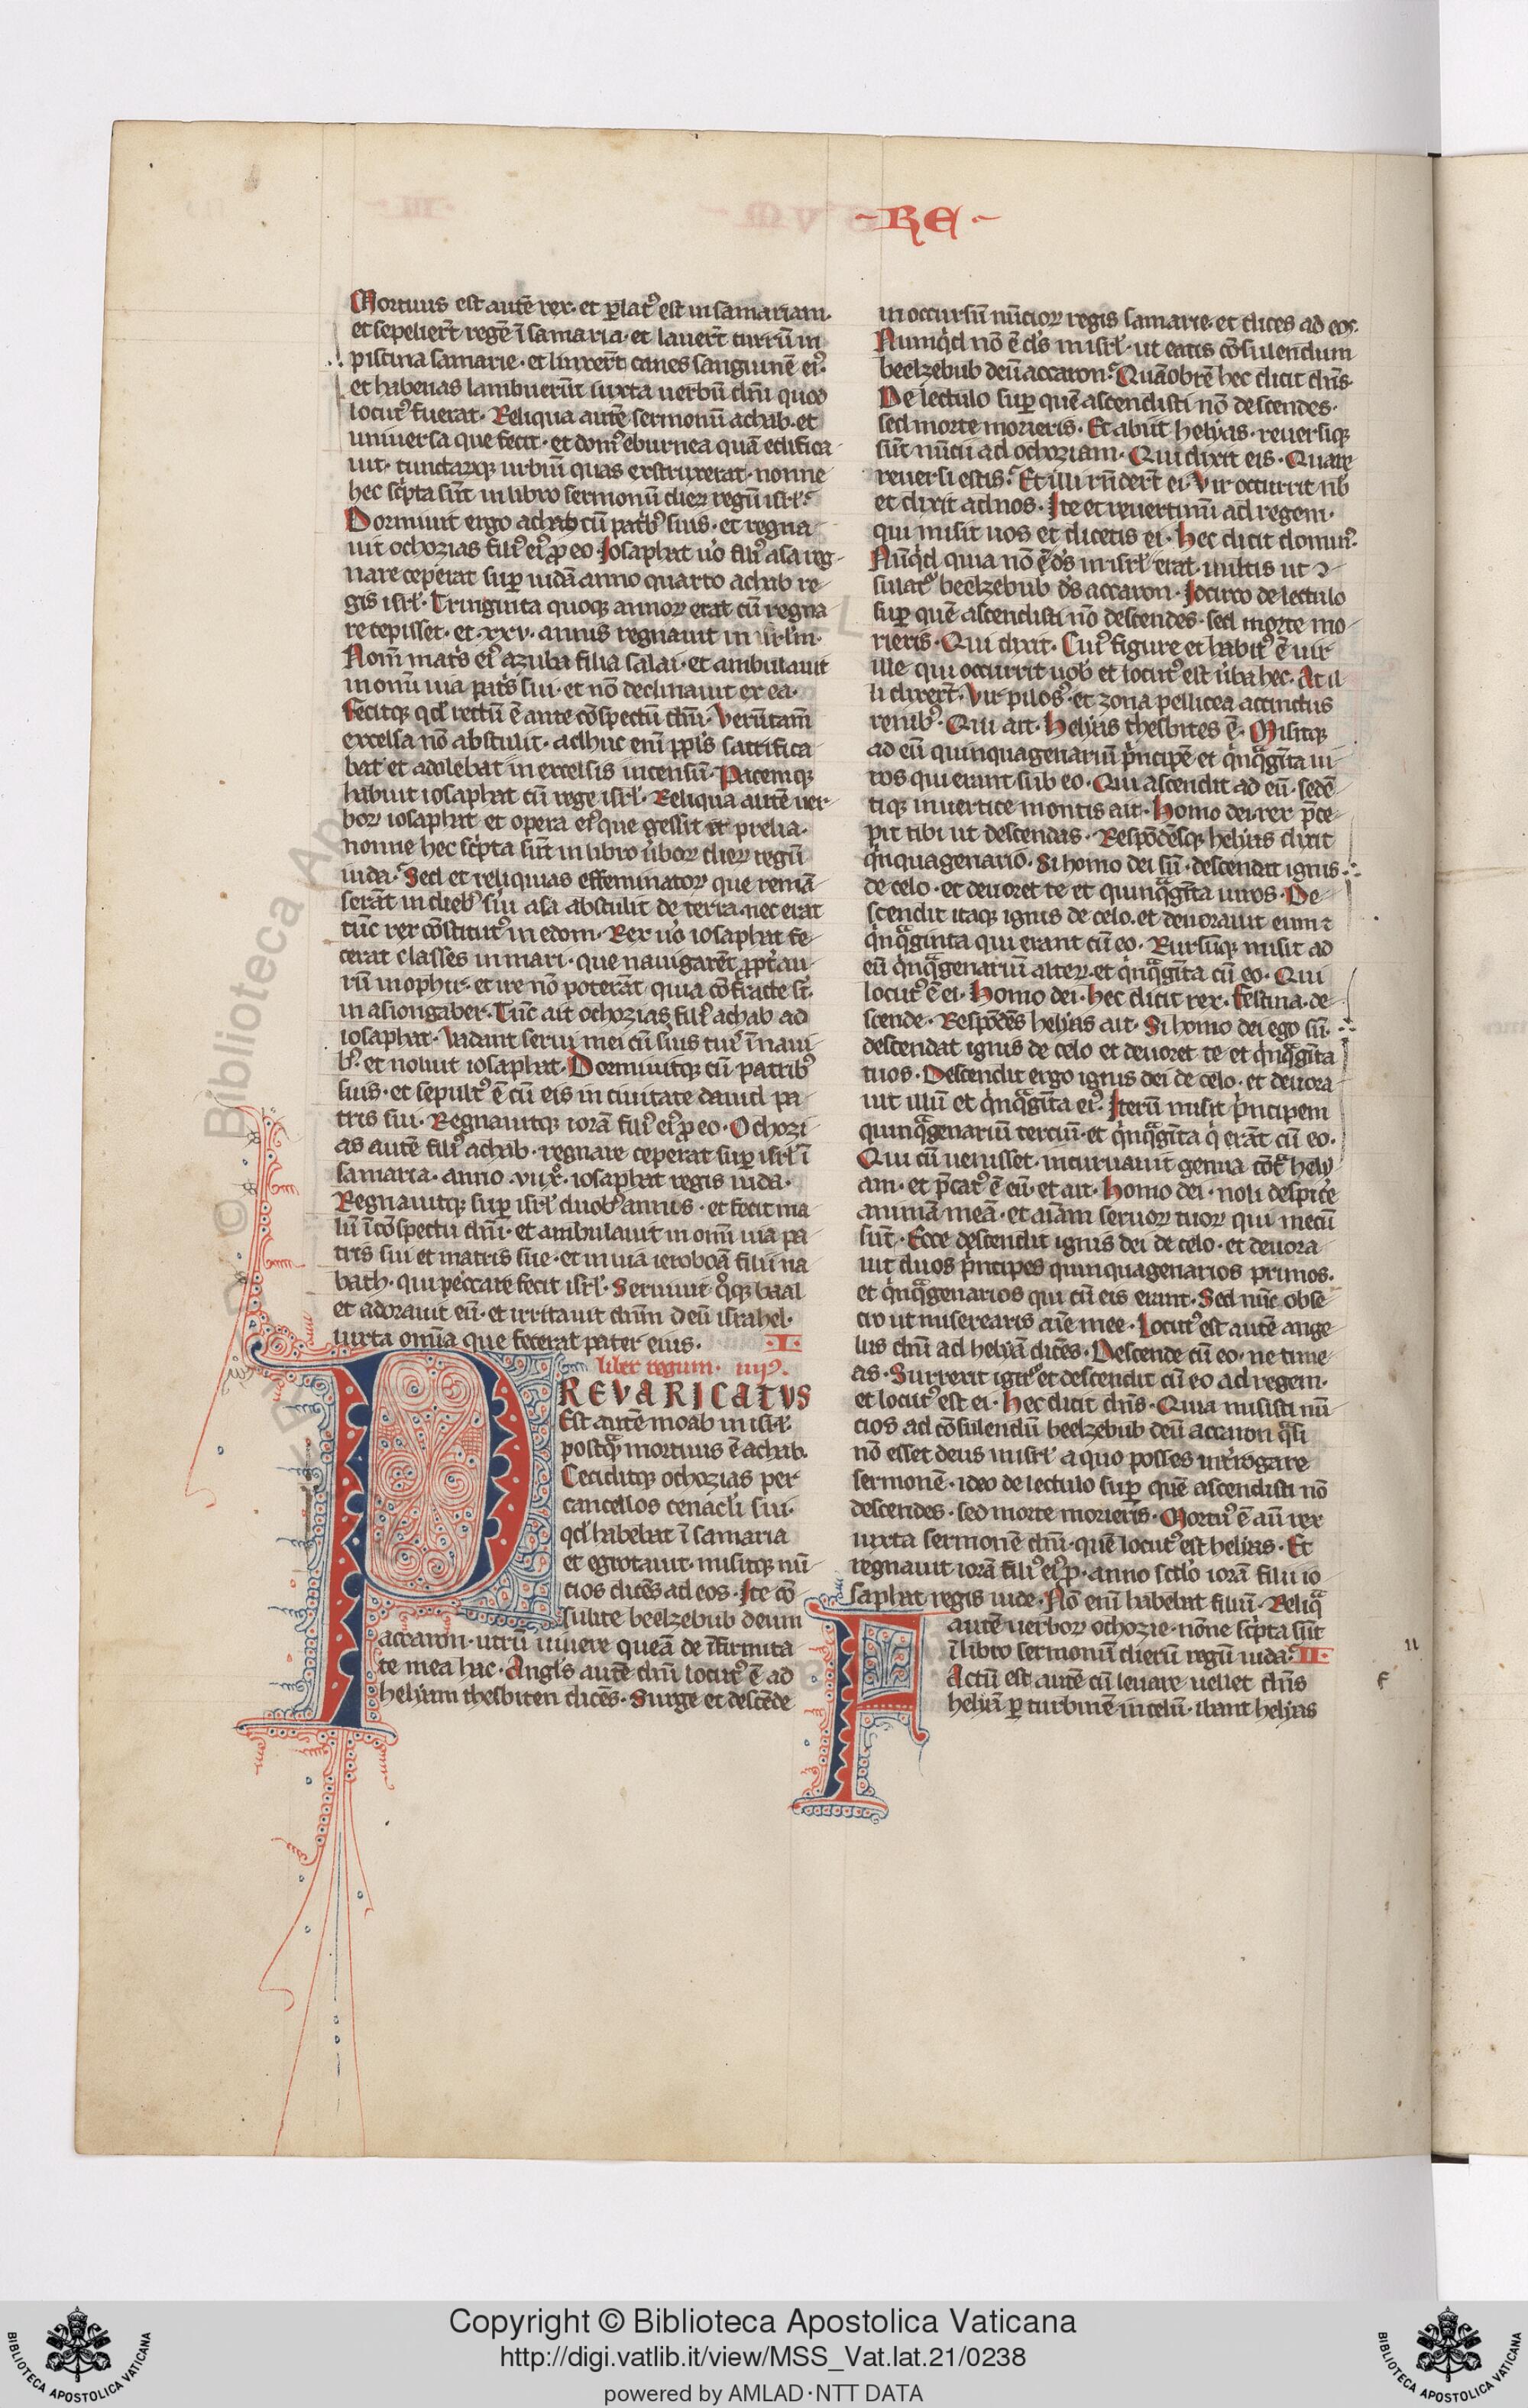 -RE·-
Mortuus est autē rex· et plat᷒ est in samariam·
et sepelier̄t regē ī samaria· et lauer̄t currū in
piscina samarie· et linxer̄t canes sanguinē ei᷒·
et habenas lauuerūt iuxta uerbū dn̄i quod
locut᷒ fuerat· Reliqua autē sermonū achab· et
uniuersa que fecit· et dom᷒ eburnea quā edifica
uit· cunctarꝫ urbiū quas exstruxerat· nonne
hec sc̄pta sūt in libro sermonū dierꝝ regū isrl̄·
Dormiuit ergo achab cū pat'b᷒ suis· et regna
uit ochozias fili᷒ ei᷒ ꝓ eo· Iosaphat uo̊ fili᷒ asa reg
nare ceperat sup iudā anno quarto achab re
gis isrl̄· Tringinta quoqꝫ annoꝝ erat cū regna
re cepisset· et· xxv· annis regnauit in irlm̄·
Nom̄ mat's ei᷒ azuba filia salai· et ambulauit
in om̄i uia pat's sui· et nō declinauit ex ea·
Fecitqꝫ qd̄ rectū ē ante cōspectū dn̄i· Verūtam̄
excelsa nō abstulit· adhuc eni᷒ ppl's sacrifica
bat et adolebat in excelsis incensū· Pacemqꝫ
habuit iosaphat cū rege isrl̄· Reliqua autē uer
boꝝ iosaphat et opera ei᷒ que gessit et prelia·
nonne hec sc̄pta sūt in libro ūboꝝ dieꝝ regū
iuda· Sed et reliquias effeminatoꝝ que remā
serāt in dieb᷒ sui asa abstulit de terra· nec erat
tūc rex cōstitut᷒ in edom· Rex uo̊ iosaphat fe
cerat classes in mari· que nauigarēt ꝓpt' au
rū in ophir· et ire nō poterāt quia cōfracte st̄·
in asiongaber· Tūc ait ochozias fili᷒ achab ad
iosaphat· Vadant serui mei cū suis tui᷒ ī naui
b᷒· et noluit iosaphat· Dormiuitqꝫ cū patrib᷒
suis· et sepult᷒ ē cū eis in ciuitate dauid pa
tris sui· Regnauitqꝫ iorā fili᷒ ei᷒ ꝓ eo· Ochozi
as autē fili᷒ achab· regnare ceperat sup isrl̄ ī
samaria· anno· xvii· iosaphat regis iuda·
Regnauitqꝫ sup isrl̄ duob᷒ annis· et fecit ma
lū ī cōspectu dn̄i· et ambulauit in om̄i uia pa
tris sui et matris sue· et in uia ieroboā filii na
bath· qui peccare fecit isrl̄· Seruiuit q᷒qꝫ baal
et adorauit eū· et irritauit dn̄m deū israhel·
iuxta om̄ia que fecerat pater eius· ·I·
liber regum· iiij᷒·
PREVARICATVS
Est autē moab in isrl̄·
postq̄ mortuus ē achab·
Ceciditqꝫ ochozias per
cancellos cenacl'i sui·
qd̄ habebat ī samaria
et egrotauit· misitqꝫ nū
cios dicēs ad eos· Ite cō
sulite beelzebub deum
accaron· utrū uiuere queā de īfirmita
te mea hac· Angl's autē dn̄i locut᷒ ē ad
helyam thesbiten dicēs· Surge et descēde
in occursū nūcioꝝ regis samarie· et dices ad eos·
Numq̇d nō ē ds̄ in isrl̄· ut eatis cōsulendum
beelzebub deū accaron· Quāobrē hec dicit dn̄s·
De lectulo sup quē ascendisti nō descendes·
sed morte morieris· Et abiit helyas· reuersiqꝫ
sūt nūcii ad ochoziam· Qui dixit eis· Quare
reuersi estis· Et illi rn̄der̄t ei· Vir occurrit nb̄
et dixit ad nos· Ite et reuertimī ad regem·
qui misit uos et dicetis ei· Hec dicit domin᷒·
Nūq̇d quia nō ē ds̄ in isrl̄ erat· mittis ut ꝯ
sulat᷒ beelzebub ds̄ accaron· Idcirco de lectulo
sup quē ascendisti nō descendes· sed morte mo
rieris· Qui dixit· Cui᷒ figure et habit᷒ ē uir
ille qui occurrit uob̄ et locut᷒ est ūba hec· At il
li dixer̄t· Vir pilos᷒· et zona pellicea accinctus
renib᷒· Qui ait· Helyas thesbites ē· Misitqꝫ
ad eū quinquagenariū p'ncipē et q'nq̄gīta ui
ros qui erant sub eo· Qui ascendit ad eū· sedē
tiqꝫ in uertice montis ait· Homo dei· rex p̄ce
pit tibi ut descendas· Respōdēsqꝫ helyas dixit
q'nquagenario· Si homo dei sū· descendat ignis
de celo· et deuoret te et quinq̄gīta uiros· De
scendit itaqꝫ ignis de celo· et deuorauit eum ⁊
q'nq̄ginta qui erant cū eo· Rursūqꝫ misit ad
eū q'nq̄genariū alteꝝ· et q'nq̄gīta cū eo· Qui
locut᷒ ē ei· Homo dei· hec dicit rex· festina· de
scende· Respōdēs helyas ait· Si homo dei ego sū·
descendat ignis de celo et deuoret te et q'nq̄gīta
tuos· Descendit ergo ignis dei de celo· et deuora
uit illū et q'nq̄gīta ei᷒· Iterū misit p'ncipem
quinq̄genariū terciū· et q'nq̄gīta q' erāt cū eo·
Qui cū uenisset· incuruauit genua cōt̄ hely
am· et p̄cat᷒ ē eū· et ait· Homo dei· noli despic'e
animā meā· et aīam seruoꝝ tuoꝝ qui mecū
sūt· Ecce descendit ignis dei de celo· et deuora
uit duos p'ncipes quinquagenarios primos·
et q'nq̄genarios qui cū eis erant· Sed nūc obse
cro ut miserearis aīe mee· Locut᷒ est autē ange
lus dn̄i ad helyā dicēs· Descende cū eo· ne time
as· Surrexit igit᷒ et descendit cū eo ad regem·
et locut᷒ est ei· Hec dicit dn̄s· Quia misisti nū
cios ad cōsulendū beelzebub deū accaron q̄si
nō esset deus in isrl̄ a quo posses int'rogare
sermonē· ideo de lectulo sup quē ascendisti nō
descendes· sed morte morieris· Mortu᷒ ē aū rex
iuxta sermonē dn̄i· quē locut᷒ est helyas· Et
regnauit iorā fili᷒ ei᷒ ꝓ· anno scd̄o iorā filii io
saphat regis iude· Nō eni᷒ habebat filiū· Reliq̄
autē uerboꝝ ochozie· nōne sc̄pta sūt
ī libro sermonū dierū regū iuda· II·
FActū est autē cū leuare uellet dn̄s
helyā p turbinē in celū· ibant helyas
Copyright © Biblioteca Apostolica Vaticana
http://digi.vatlib.it/view/MSS_Vat.lat.21/0238
powered by AMLAD·NTT DATA
BIBLIOTECA APOSTOLICA VATICANA
BIBLIOTECA APOSTOLICA VATICANA